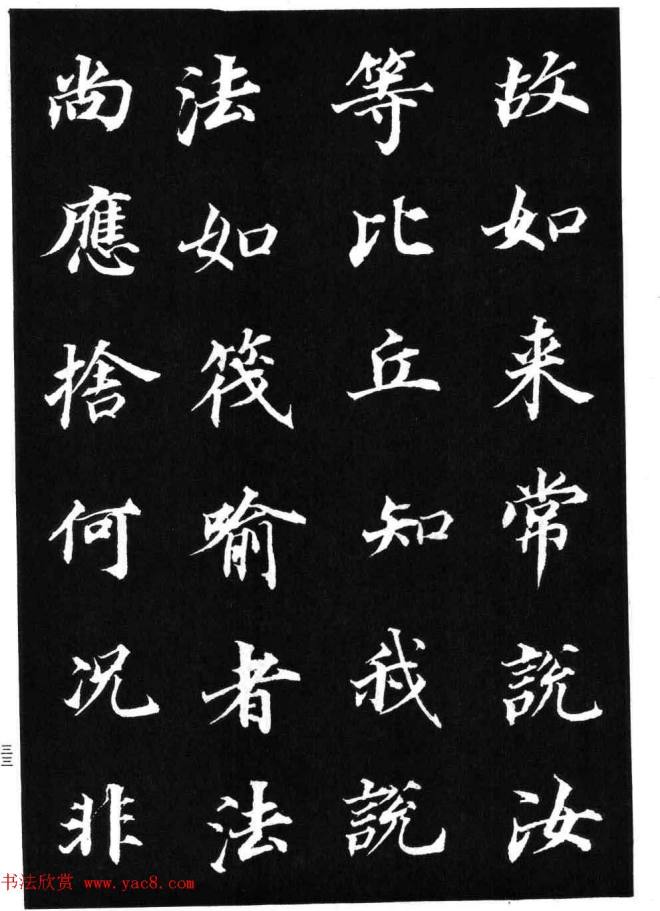 故如来常說汝
等比丘知我說
法如筏喻者法
尚應捨何况非
三三
书法欣赏 www.yac8.com